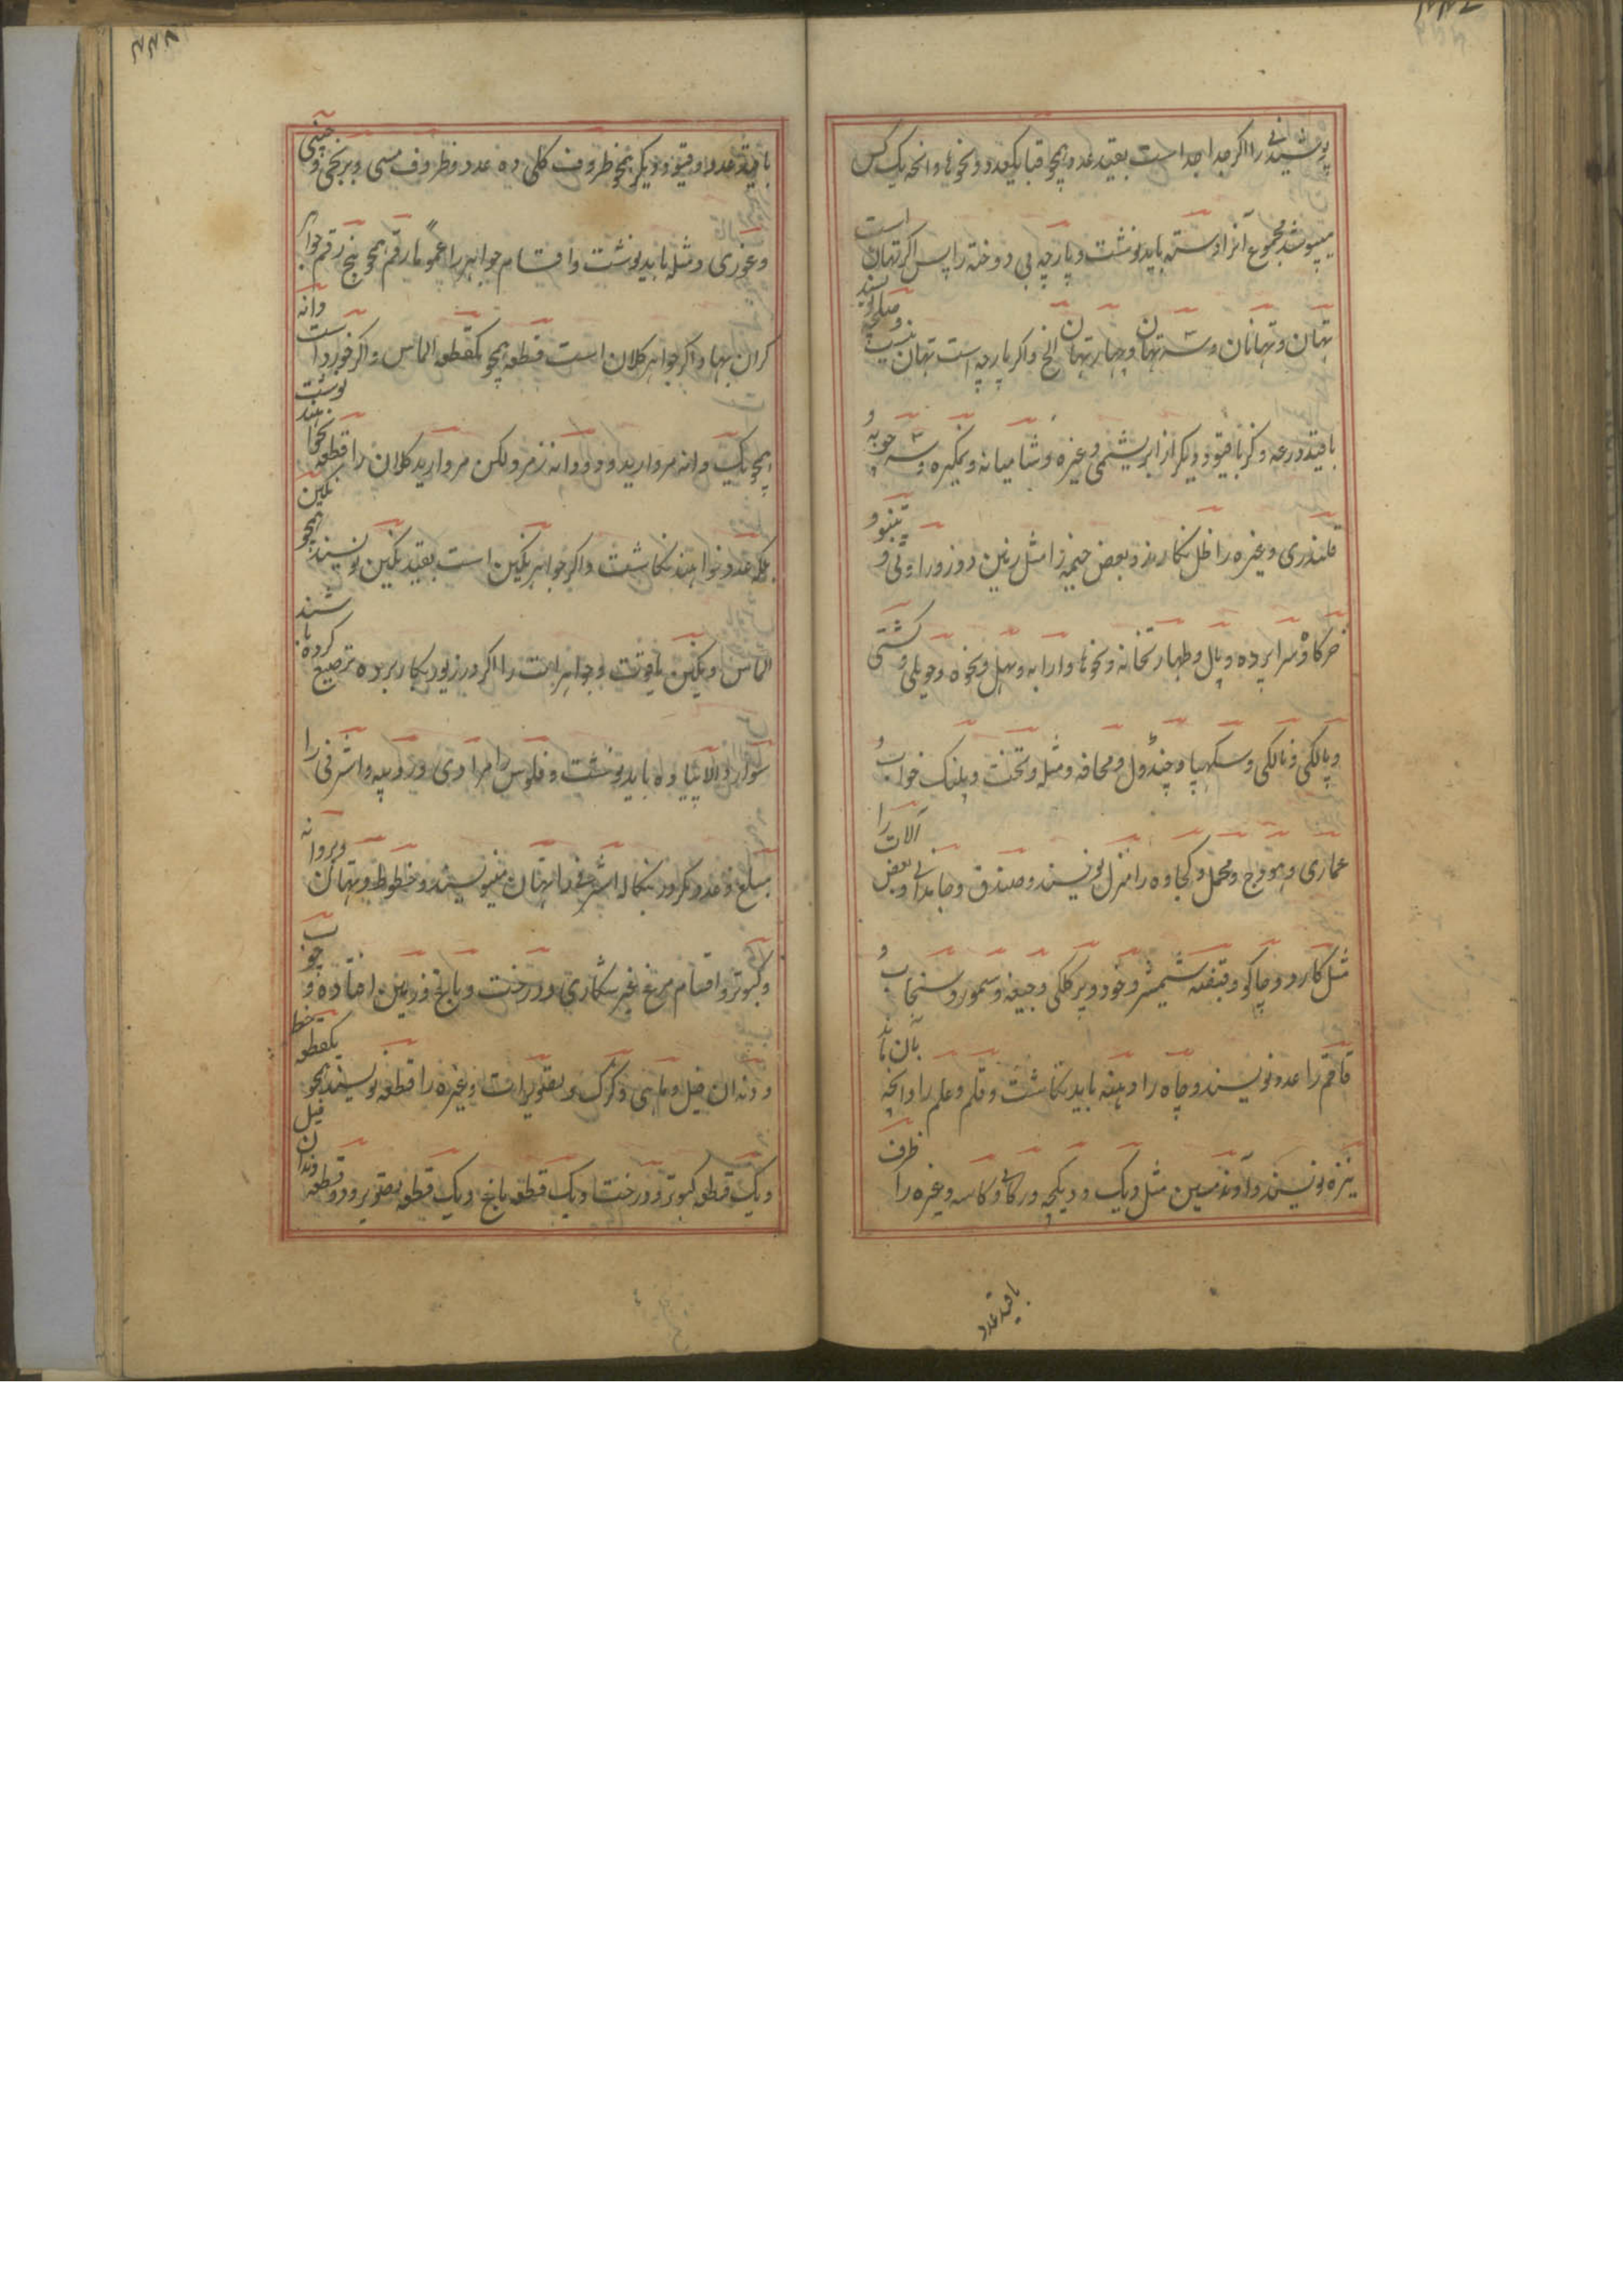 پوشیدنی را اگر جدا جدا است بقید عدد همچو قبا یکعدد و نحوها و انچه یک کس
میپوشد مجموع آنرا دسته باید نوشت و پارچه بی دوخته را پس اگر تهان است
تهان و تهانان و سه تهان و چهار تهان الخ و اگر پارچه است تهان ننویسند
با قید درعه و گز باقیود دیگر از ابریشمی و غیره و شامیانه و نمگیره و سه چوبه و
قلندری و غیره را ظل نگارند و بعض خیمه را مثل زرین دوز و راوٹی و تنبو و
خرگاه و سرا پرده و پال و طهارتخانه و نحوها و ارابه و بهل و نحوه و حویلی و کشتی
و پالکی و نالکی و سکهپال و چنڈول و محافه و مثله و تخت و پلنگ خواب و
عماری و هودج و محمل و کجاوه را منزل نویسند و صندوق و جامدانی و بعض آلات را
مثل کارد و چاکو و قبضه شمشیر و خود و پر کلکی و جیغه و سمور و سنجاب و
قاقم را عدد نویسند و چاه را دهنه باید نگاشت و قلم و علم را و انچه بآن ماند
نیزه نویسند و آوند مسین مثل دیگ و دیگچه و رکابی و کاسه و غیره را ظرف
باقید عدد
باقید عدد و قیود دیگر همچو ظروف گلی ده عدد و ظروف مسی و برنجی و چینی
و غوری و مثله باید نوشت و اقسام جواهر را عموما رقم همچو پنج رقم جواهر
گران بها و اگر جواهر کلان است قطعه همچو یکقطعه الماس و اگر خورد است دانه
همچو یک دانه مروارید و دو دانه زمرد لیکن مروارید کلان را قطعه نخواهند نوشت
بلکه عدد خواهند نگاشت و اگر جواهر نگین است بقید نگین نویسند همچو نگین
الماس و نگین یاقوت و جواهرات را اگر در زیور بکار برده ترصیع کرده باشند
سوار و الا پیاده باید نوشت و فلوس را مرادی و روپیه و اشرفی را
مبلغ و عدد مگر در بنگاله اشرفی را تهان مینویسند و خطوط و پروانه
و کبوتر و اقسام مرغ غیر شکاری و درخت و باغ و زمین افتاده و چوب
و دندان فیل و ماهی و کرک و تصویرات و غیره را قطعه نویسند همچو یکقطعه خط
و یک قطعه کبوتر و درخت و یک قطعه باغ و یک قطعه تصویر و دو قطعه دندان فیل